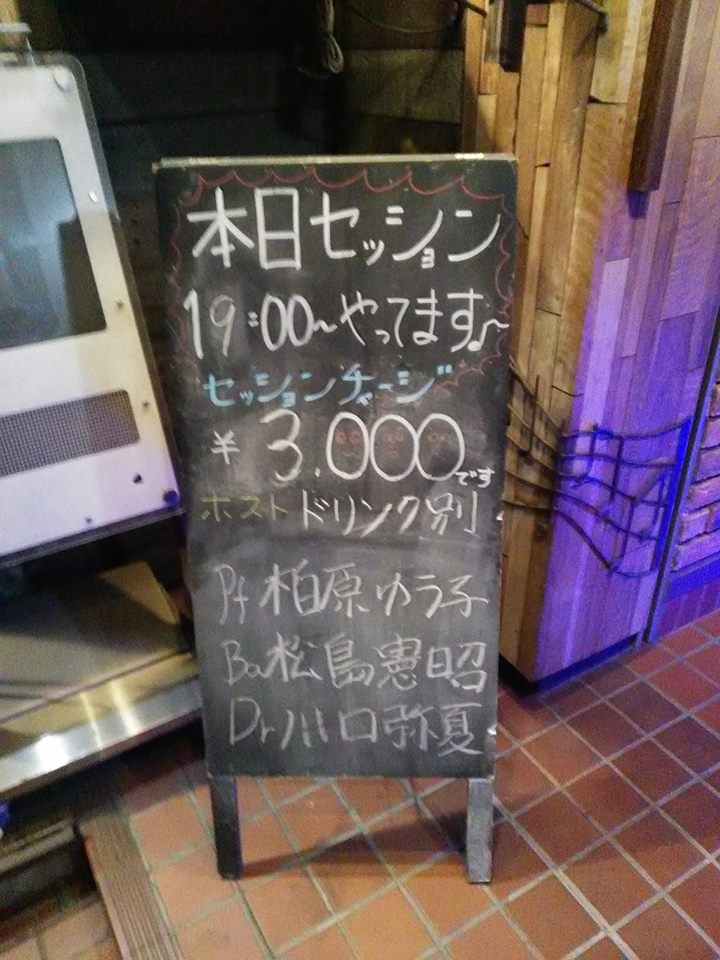 本日セッション
19:00〜やってます♪
セッションチャージ
¥3.000です
ホスト ドリンク別
Pf 柏原ゆう子
Ba 松島憲昭
Dr 川口弥夏